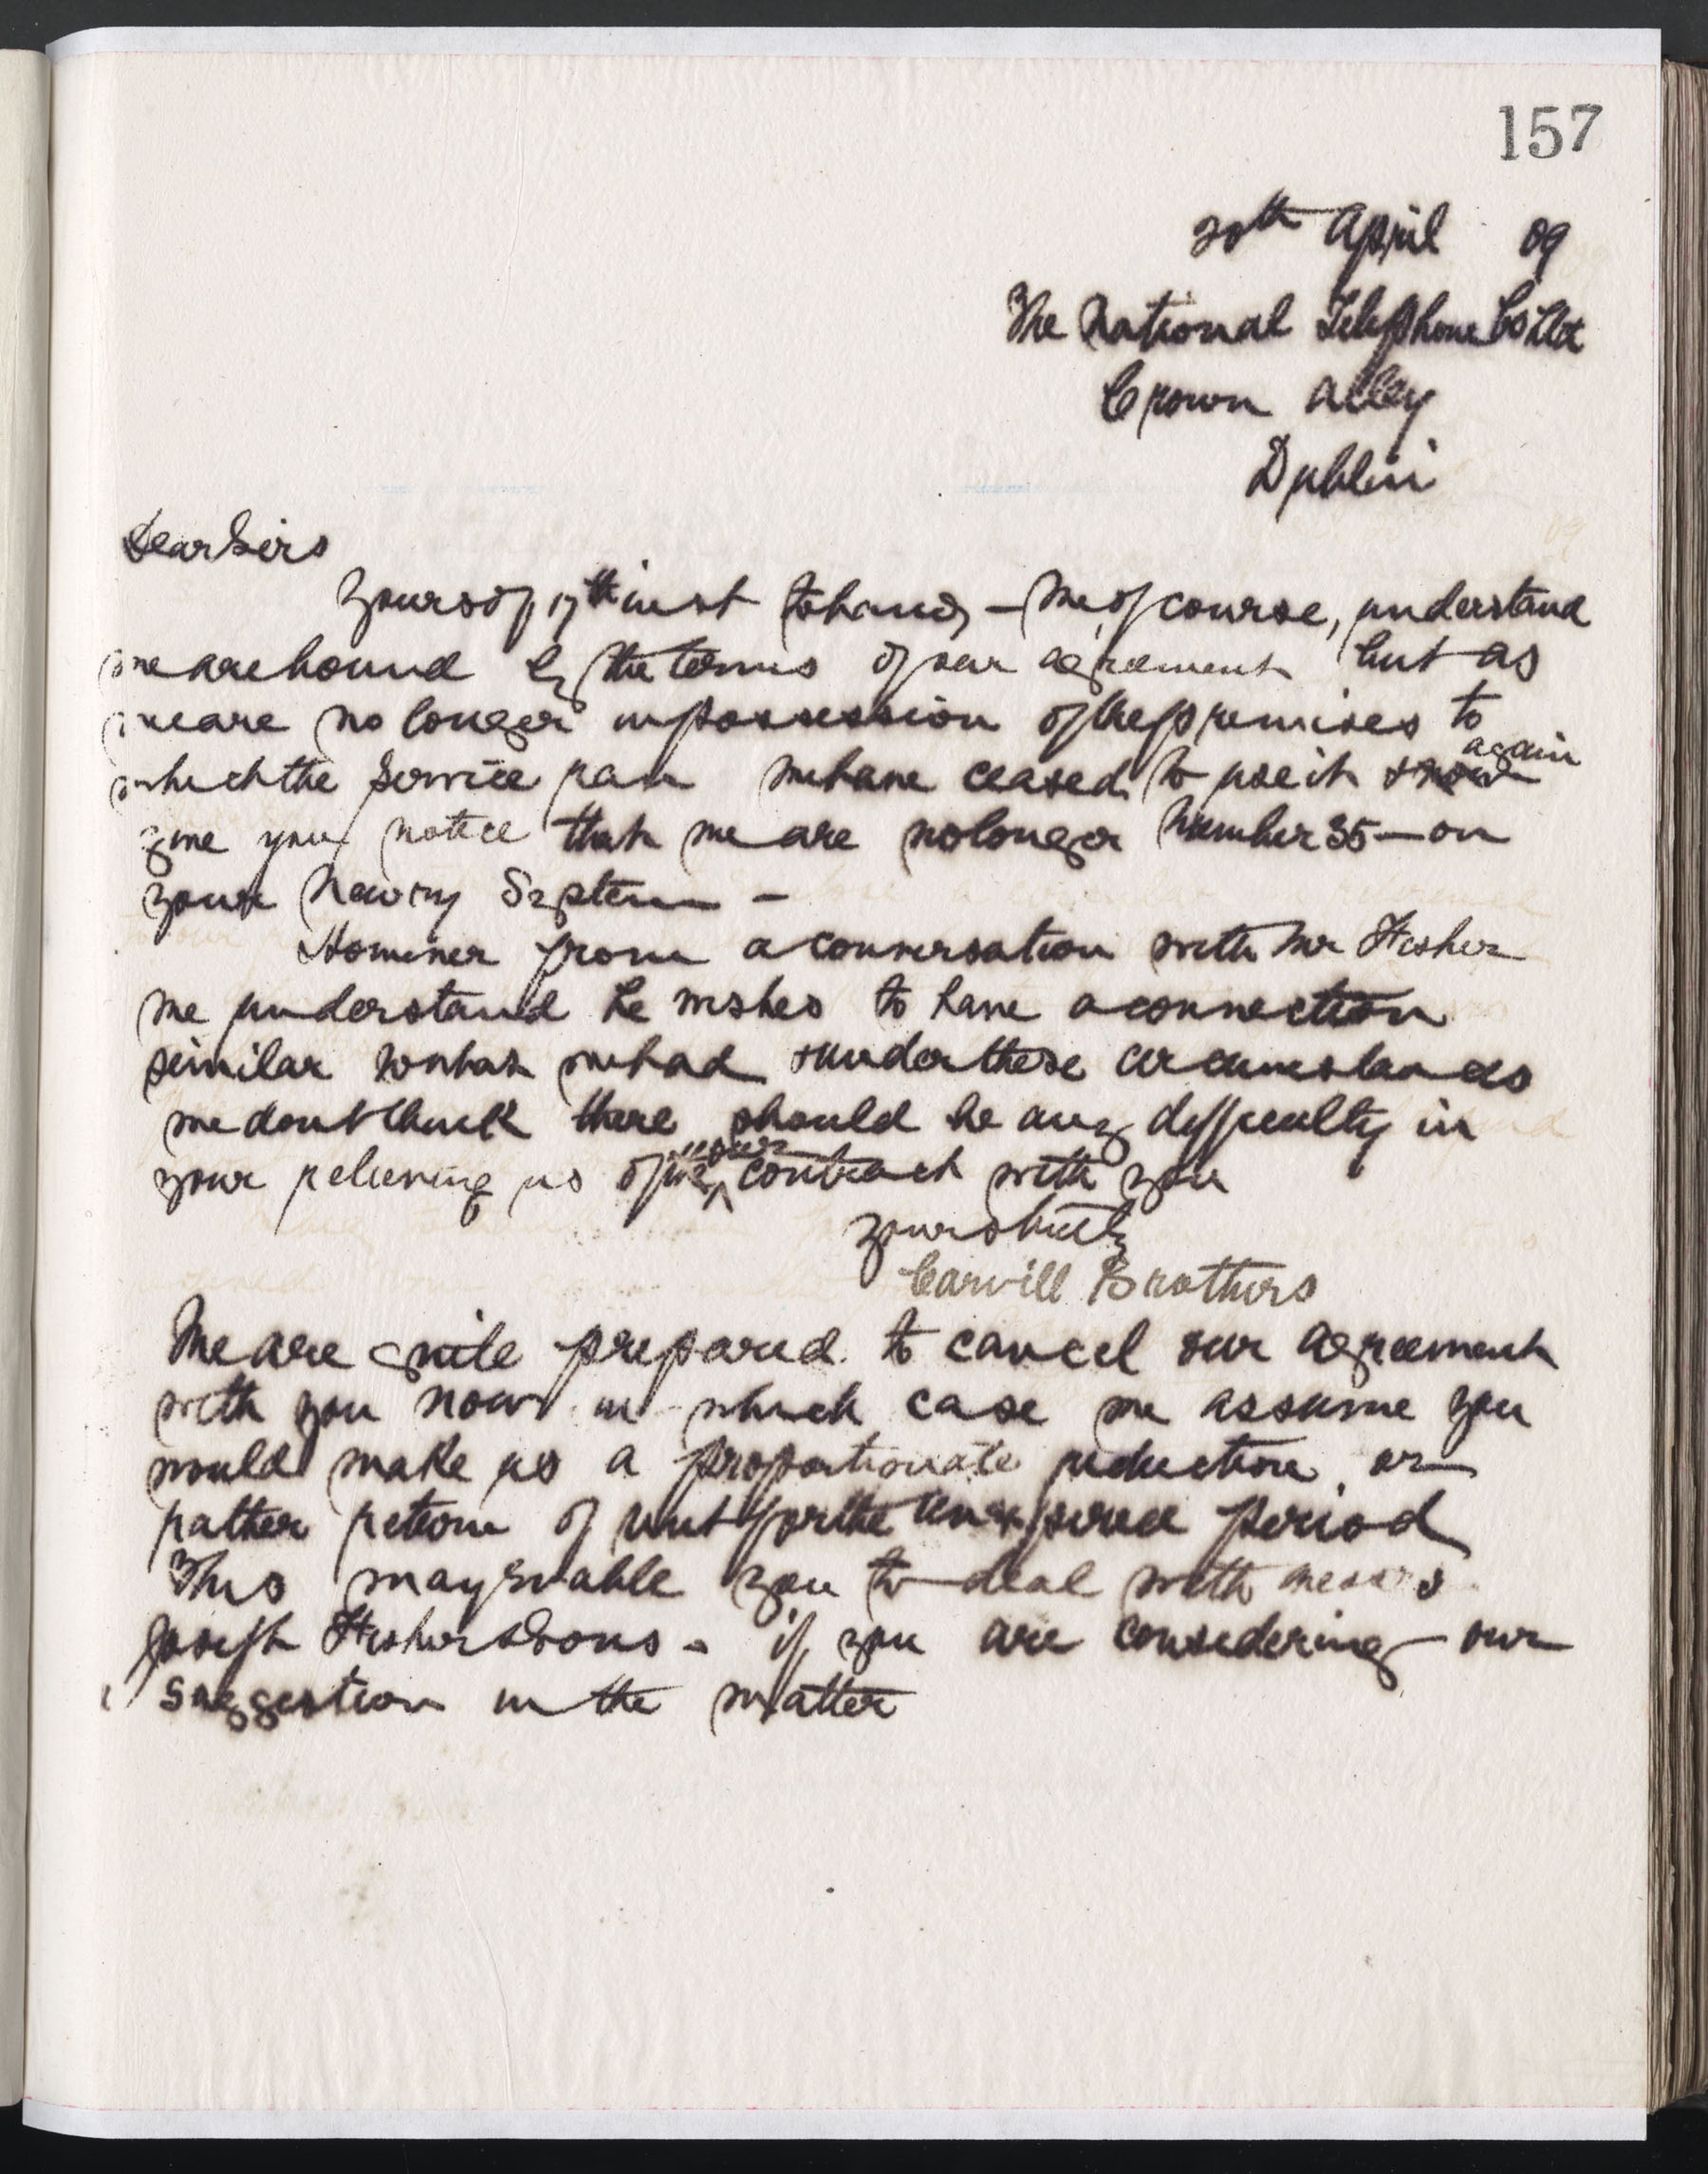 157
20th April 09
The National Telephone Co Ltd
Crown Alley
Dublin
Dear Sirs
Yours of 17th inst to hand, – We, of course, understand
we are bound by the terms of our agreement but as
we are no longer in possession of the premises to
which the service ran we have ceased to use it & now again
give you notice that we are no longer Number 35 – on
your Newry System –
However from a conversation with Mr Fisher
we understand he wishes to have a connection
similar to what we had & under these circumstances
we dont think there should be any difficulty in
your relieving us of the contract with you
Yours truly
Carvill Brothers
We are quite prepared to cancel our agreement
with you now in which case we assume you
would make us a proportionate reduction or
rather return of rent for the unexpired period
This may enable you to deal with Messrs
Joseph Fisher & Sons – if you are considering our
suggestion in the matter